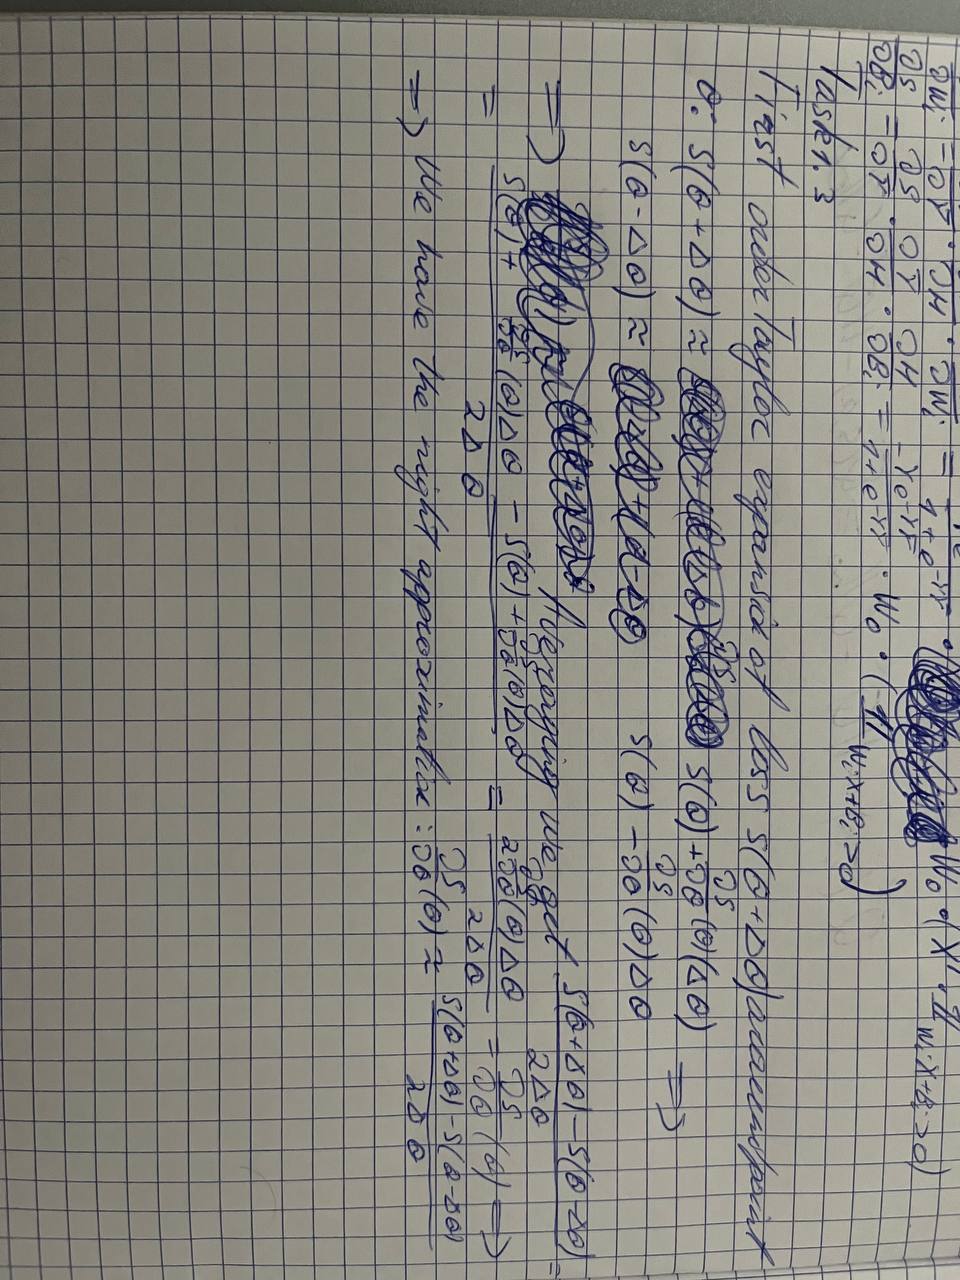 ∂S/∂W_i = ∂S/∂Y · ∂Y/∂H · ∂H/∂W_i = · W_o · (X · 𝟙_{W_i·X+B_i>0})
∂S/∂B_i = ∂S/∂Y · ∂Y/∂H · ∂H/∂B_i = -Ye^{-YY}/1+e^{-YY} · W_o · (𝟙_{W_i·X+B_i>0})
Task1.3
First order Taylor expansion of loss S(θ+Δθ) around point
θ: S(θ+Δθ) ≈ S(θ) + ∂S/∂θ (θ)(Δθ) =>
S(θ-Δθ) ≈ S(θ) - ∂S/∂θ (θ)Δθ
=> Averaging we get S(θ+Δθ)-S(θ-Δθ)/2Δθ =
= S(θ)+ ∂S/∂θ (θ)Δθ - S(θ) + ∂S/∂θ (θ)Δθ/2Δθ = 2∂S/∂θ (θ)Δθ/2Δθ = ∂S/∂θ (θ) =>
=> We have the right approximation: ∂S/∂θ (θ) ≈ S(θ+Δθ)-S(θ-Δθ)/2Δθ